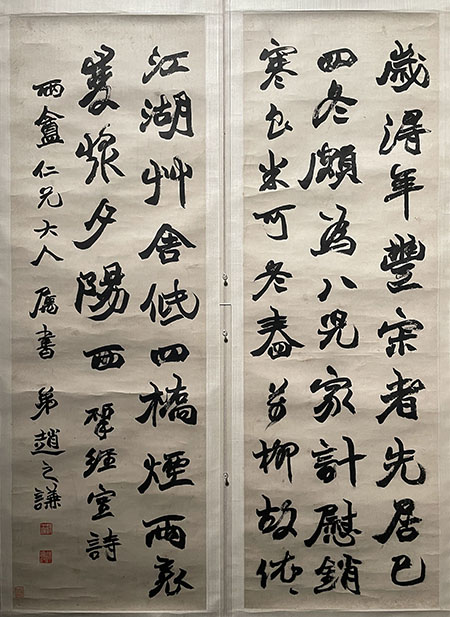 歲得年豐宗者先居已
四冬頗為八兒家計慰銷
寒白米可冬舂柳故依〻
江湖艸舍低四橋煙雨裏
雙槳夕陽西揅經室詩
雨盦仁兄大人屬書 弟趙之謙